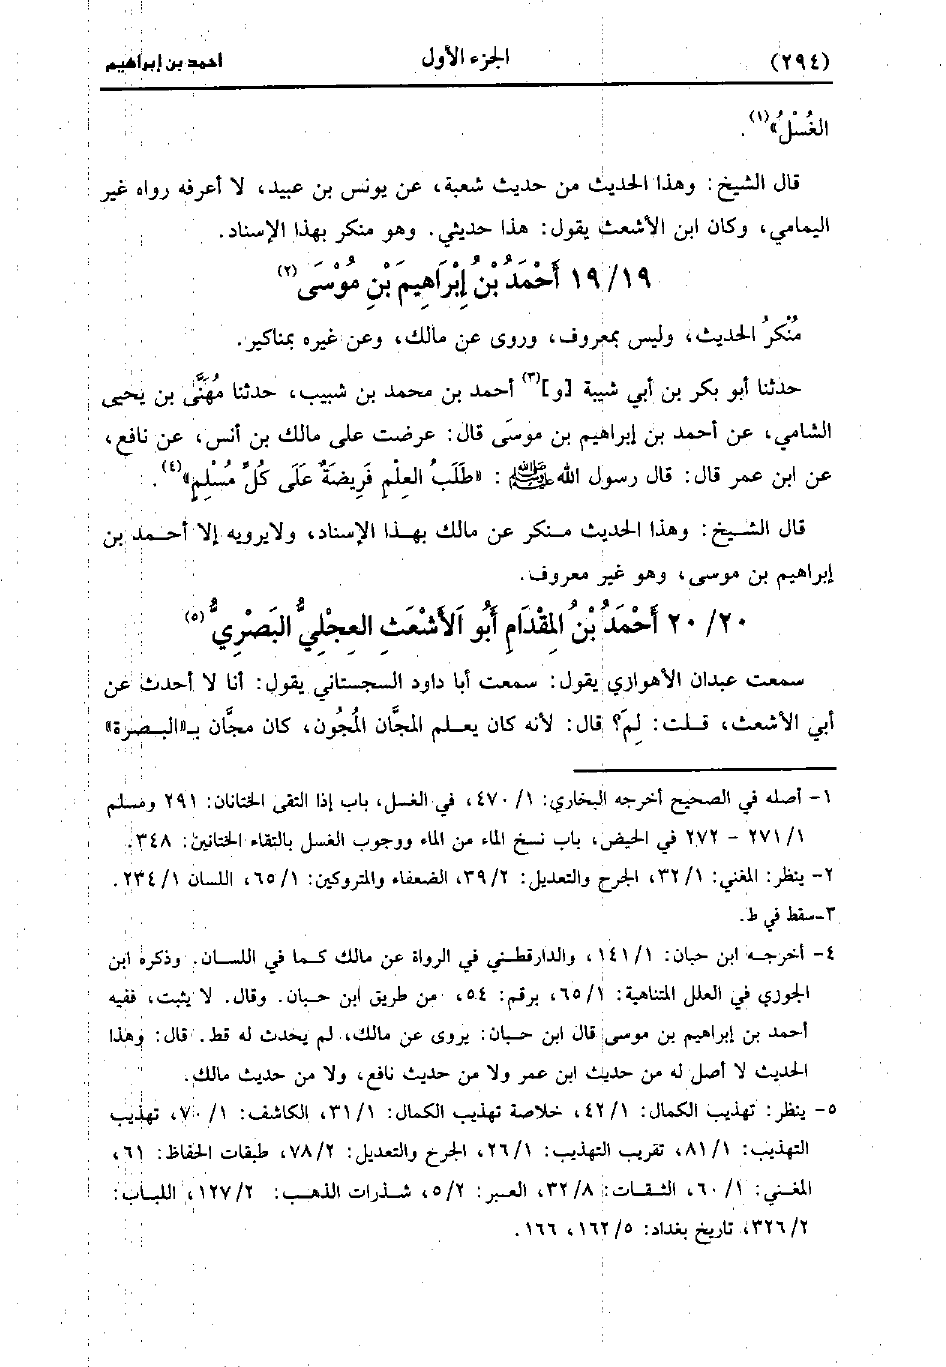 (٢٩٤) الجزء الأول أحمد بن إبراهيم
الغُسْلُ»(١).
قال الشيخ: وهذا الحديث من حديث شعبة، عن يونس بن عبيد، لا أعرفه رواه غير
اليمامي، وكان ابن الأشعث يقول: هذا حديثي. وهو منكر بهذا الإسناد.
١٩/١٩ أَحْمَدُ بْنُ إِبْرَاهِيمَ بْنِ مُوْسَى(٢)
مُنْكرُ الحديث، وليس بمعروف، وروى عن مالك، وعن غيره بمناكير.
حدثنا أبو بكر بن أبي شيبة [و](٣) أحمد بن محمد بن شبيب، حدثنا مُهَنَّى بن يحيى
الشامي، عن أحمد بن إبراهيم بن موسَى قال: عرضت على مالك بن أنس، عن نافع،
عن ابن عمر قال: قال رسول الله ﷺ: «طَلَبُ العِلْمِ فَرِيضَةٌ عَلَى كُلِّ مُسْلِمٍ»(٤).
قال الشيخ: وهذا الحديث منكر عن مالك بهذا الإسناد، ولايرويه إلا أحمد بن
إبراهيم بن موسى، وهو غير معروف.
٢٠/٢٠ أَحْمَدُ بْنُ المِقْدَامِ أَبُو الأَشْعَثِ العِجْلِيُّ البَصْرِيُّ(٥)
سمعت عبدان الأهوازي يقول: سمعت أبا داود السجستاني يقول: أنا لا أحدث عن
أبي الأشعث، قلت: لِمَ؟ قال: لأنه كان يعلم المجَّان المُجُون، كان مجَّان بـ«البصرة»
١- أصله في الصحيح أخرجه البخاري: ١/٤٧٠، في الغسل، باب إذا التقى الختانان: ٢٩١ ومسلم
١/٢٧١ - ٢٧٢ في الحيض، باب نسخ الماء من الماء ووجوب الغسل بالتقاء الختانين: ٣٤٨.
٢- ينظر: المغني: ١/٣٢، الجرح والتعديل: ٢/٣٩، الضعفاء والمتروكين: ١/٦٥، اللسان ١/٢٣٤.
٣-سقط في ط.
٤- أخرجه ابن حبان: ١/١٤١، والدارقطني في الرواة عن مالك كما في اللسان. وذكره ابن
الجوزي في العلل المتناهية: ١/٦٥، برقم: ٥٤، من طريق ابن حبان. وقال. لا يثبت، ففيه
أحمد بن إبراهيم بن موسى قال ابن حبان: يروى عن مالك، لم يحدث له قط. قال: وهذا
الحديث لا أصل له من حديث ابن عمر ولا من حديث نافع، ولا من حديث مالك.
٥- ينظر: تهذيب الكمال: ١/٤٢، خلاصة تهذيب الكمال: ١/٣١، الكاشف: ١/٧٠، تهذيب
التهذيب: ١/٨١، تقريب التهذيب: ١/٢٦، الجرح والتعديل: ٢/٧٨، طبقات الحفاظ: ٦١،
المغني: ١/٦٠، الثقات: ٨/٣٢، العبر: ٢/٥، شذرات الذهب: ٢/١٢٧، اللباب:
٢/٣٢٦، تاريخ بغداد: ٥/١٦٢، ١٦٦.